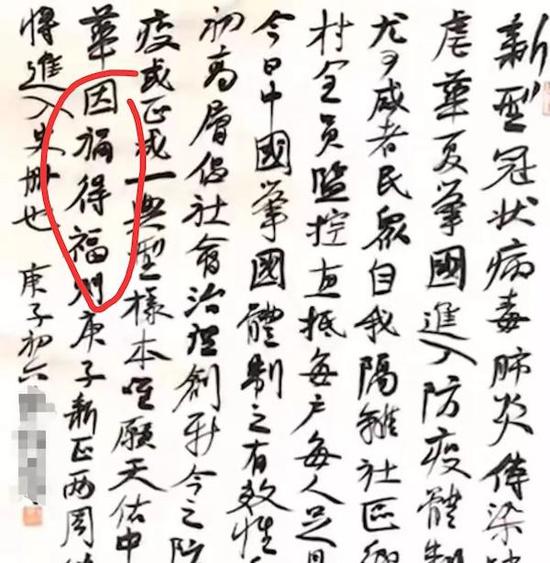 新型冠状病毒肺炎传染
虐華夏举國進入防疫體制
尤可感者民众自我隔離社区
村全員监控直抵每户每人足
今日中國举國體制之有效性
初高層倡社會治理創新今之防
疫或正成一典型樣本唯願天佑中
華因禍得福则庚子新正两周
将進入史册也
庚子初六